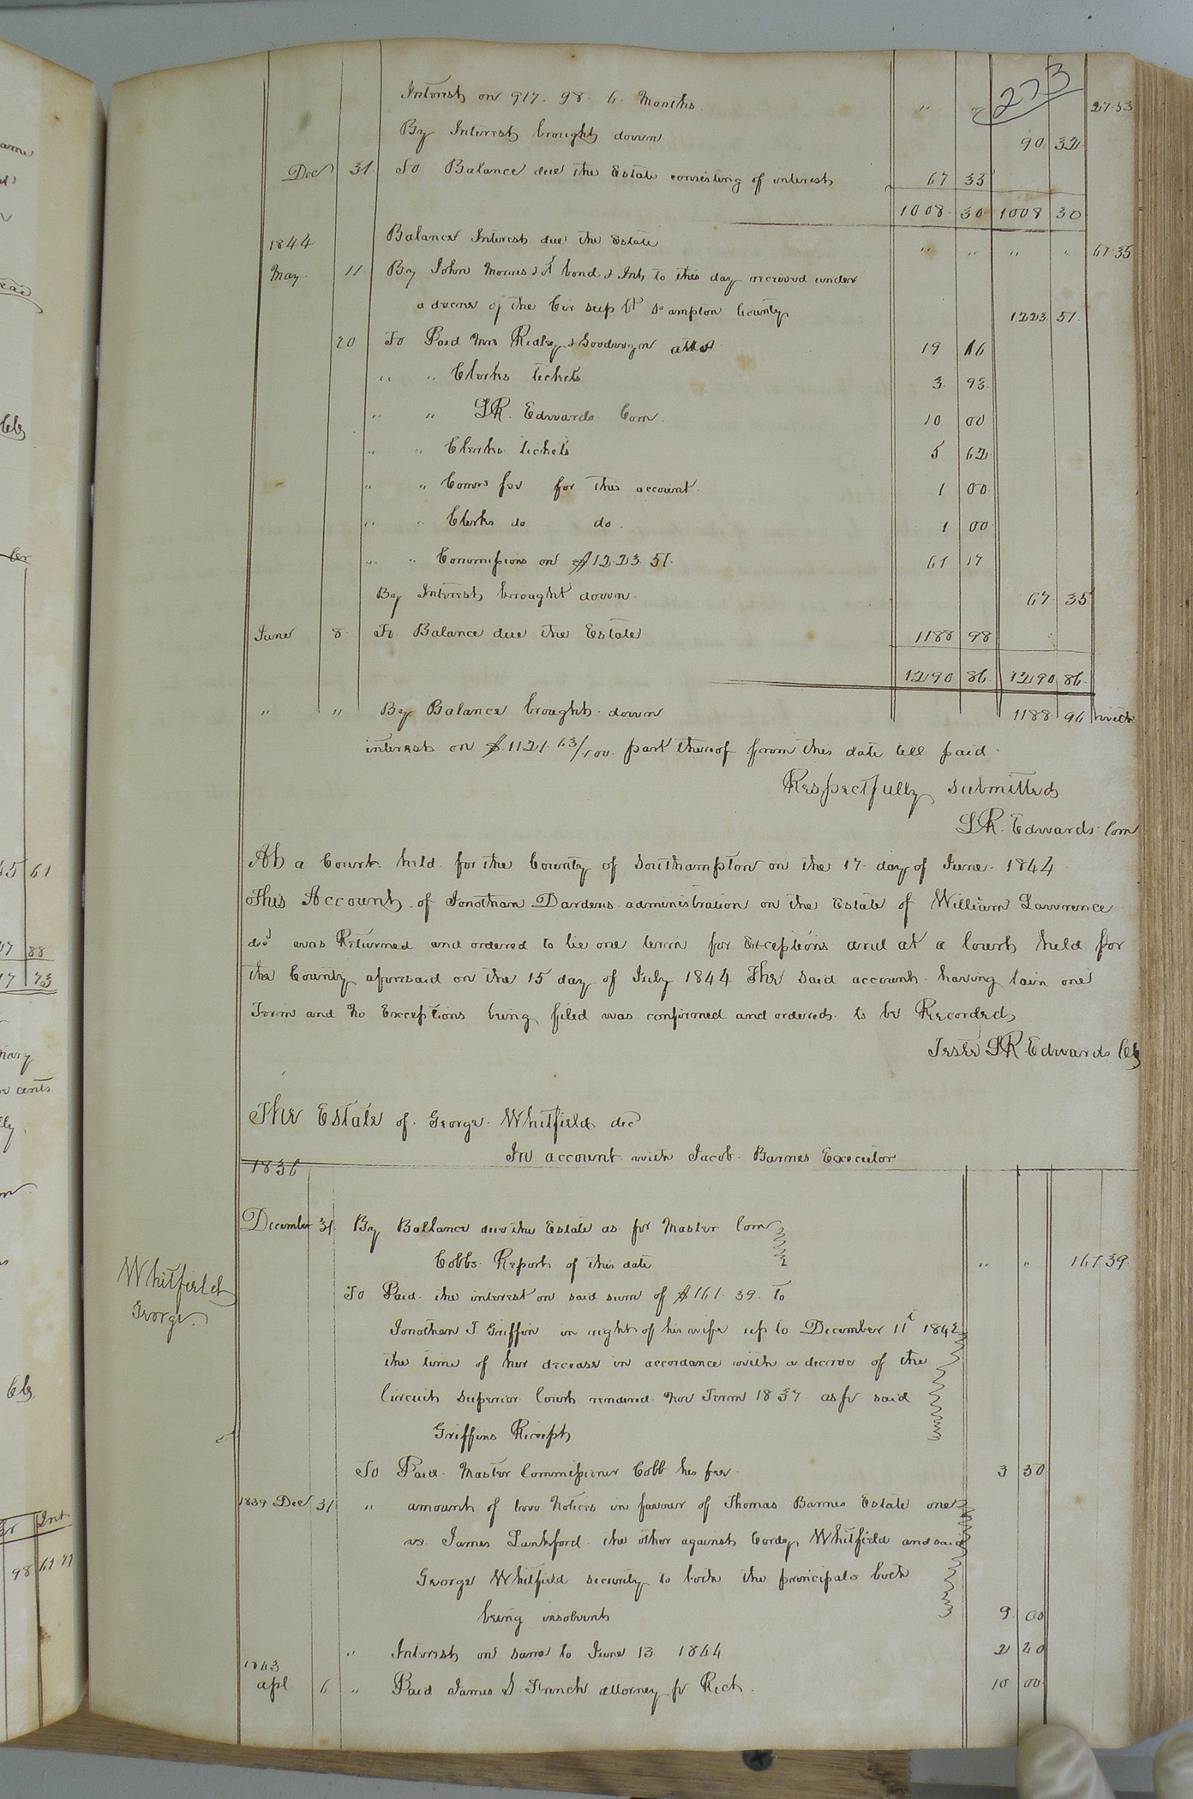 273
Interest on 917. 98 6 Months " " 27.53
By Interest brought down 90 32
Dec 31 To Balance due the Estate consisting of interest 67 35
1008 30 1008 30
1844 Balance Interest due the Estate " " " " 67.35
May 11 By John bond & Int to this day received under
a decree of the Cir Sup Ct So ampton County 1223 51
20 To Paid Mrs Ridley & Goodwyn atto 19 16
" " Clerks tickets 3 93
" " L R. Edwards Com. 10 00
" " Clerks tickets 5 62
" " Comrs fee for this account 1 00
" " Clerks do do. 1 00
" " Commissions on $1223 51. 61 17
By Interest brought down 67 35
June 8 To Balance due the Estate 1188 98
1290 86 1290 86
" " By Balance brought down 1188 96 with
interest on $.1121 63/100 part thereof from this date till paid.
Respectfully submitted
L R. Edwards Com
At a Court held for the County of Southampton on the 17 day of June 1844
This Account of Jonathan Dardens administration on the Estate of William Lawrence
decd was Returned and ordered to lie one term for Exceptions and at a Court held for
the County aforesaid on the 15 day of July 1844 The said account having lain one
Term and No Exceptions being filed was confirmed and ordered to be Recorded
Teste L R Edwards Clk
The Estate of George Whitfield dec
In account with Jacob Barnes Executor
1836
December 31 By Ballance due the Estate as pr Master Com
Cobbs Report of this date " " 161 39
Whitfield
George
To Paid the interest on said sum of $161. 39 to
Jonathan T Griffin in right of his wife up to December 11t 1842
the time of her decease in accordance with a decree of the
Circuit Superior Court rendered Nov Term 1837 as pr said
Griffins Receipt
To Paid Master Commissioner Cobb his fee 3 30
1839 Dec 31 " amount of two Notices in favour of Thomas Barnes Estate one
vs James Lankford the other against Cordy Whitfield and said
George Whitfield security to both the principals both
being insolvent 9 00
" Interest on same to June 13 1844 2 40
1843
apl 6 " Paid James S. French attorney pr Rect. 10 00